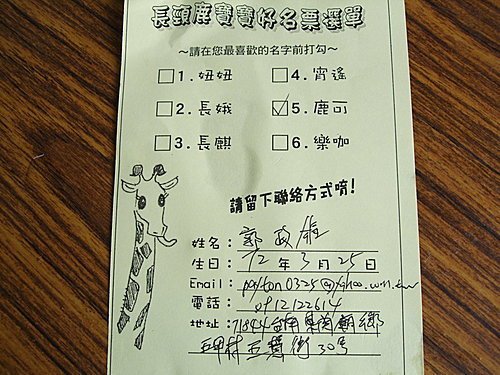 長頸鹿寶寶好名票選單
～請在您最喜歡的名字前打勾～
□1.妞妞 □4.宵遙
□2.長娥 ☑5.鹿可
□3.長麒 □6.樂咖
請留下聯絡方式唷!
姓名:郭政
生日:72年3月25日
Email:payton0325@yahoo.com.tw
電話:0912122614
地址:71844台南縣關廟鄉
五甲村五寶街30號